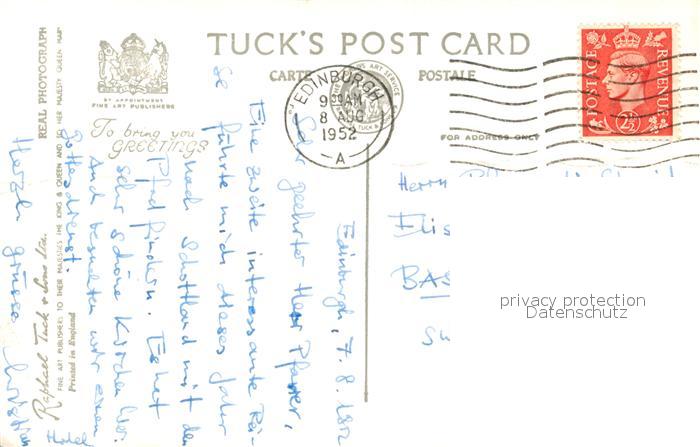 TUCK'S POST CARD
CARTE POSTALE
BY APPOINTMENT
FINE ART PUBLISHERS
REAL PHOTOGRAPH
To bring you
GREETINGS
FOR ADDRESS ONLY
EDINBURGH
9 30 AM
8 AUG
1952
A
POSTAGE REVENUE
2½
Edinburgh, 7.8.1952
Sehr geehrter Herr Pfarrer,
Eine zweite interessante Rei-
se führte mich dieses Jahr
nach Schottland mit den
Pfadfindern. Es hat
sehr schöne Kirchen hier.
und besuchten wir einen
Gottesdienst.
Herzl. Grüsse
Herrn
Elis
BAS
privacy protection
Datenschutz
Raphael Tuck & Sons Ltd.
FINE ART PUBLISHERS TO THEIR MAJESTIES THE KING & QUEEN AND TO HER MAJESTY QUEEN MARY
Printed in England